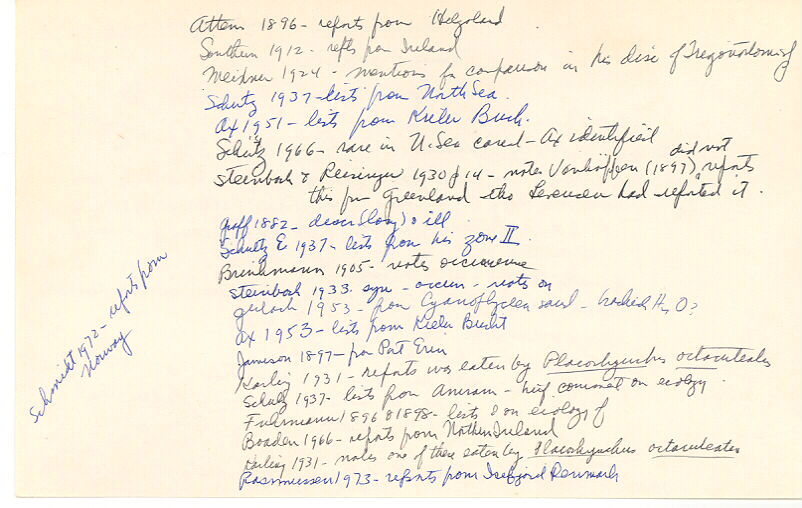 Attems 1896 - reports from Helgoland
Southern 1912 - refs from Ireland
Meixner 1924 - mentions for comparison in his disc of
Schulz 1937 - lists from North Sea.
Ax 1951 - lists from Kieler Bucht.
Schütz 1966 - rare in N. Sea canal - Ax identified
Steinbock & Reisinger 1930 p 14 - notes Vanhöffen (1897) did not report
this from Greenland tho Levinsen had reported it.
Graff 1882 - descr (long) & ill.
Schultz E 1937 - lists from his zone II.
Brinkmann 1905 - notes occurrence
Steinbock 1933 - syn - occurr - notes on
Gerlach 1953 - from Cyanophyceen sand - brackish H2O?
Ax 1953 - lists from Kieler Bucht
Jameson 1897 - from Port Erin
Karling 1931 - reports was eaten by Placorhynchus octaculeatus
Schulz 1937 - lists from Amrum - brief comment on ecology.
Fuhrmann 1896 & 1898 - lists & on ecology of
Boaden 1966 - reports from Northern Ireland
Karling 1931 - notes one of these eaten by Placorhynchus octaculeatus
Rasmussen 1973 - reports from Isefjord Denmark
Schmidt 1972 - reports from
Norway